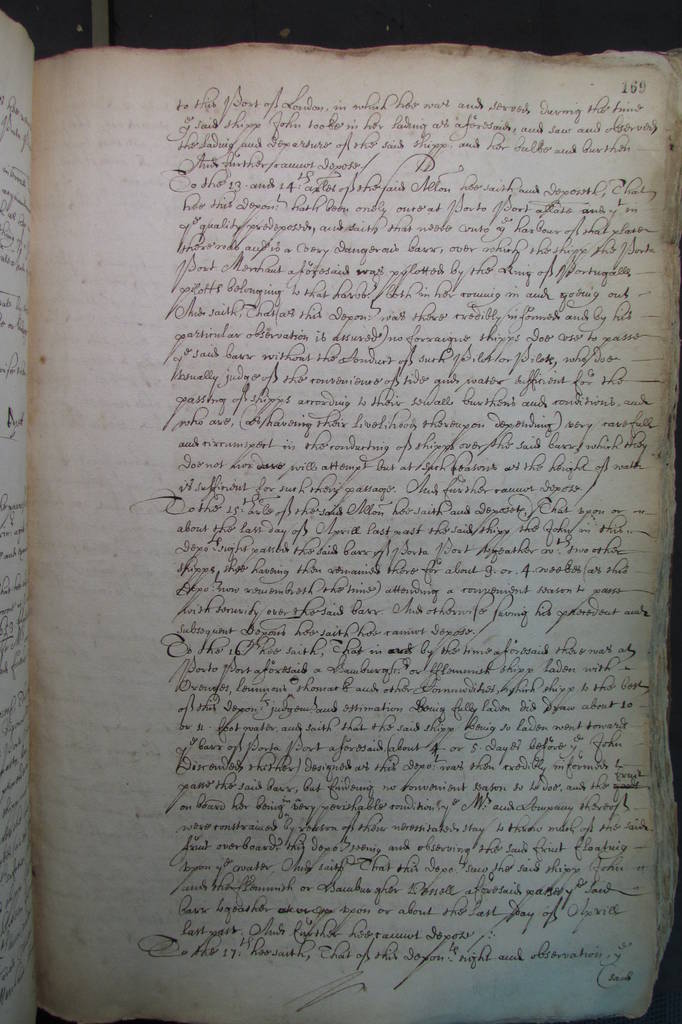 169
to this Port of London, in which hee was and served during the time
ye said shipp John tooke in her lading as aforesaid, and saw and observed
the lading and departure of the said shipp, and her bulke and burthen
And further cannot depose./
To the 13. and 14th arles of the said Allon hee saith and deposeth, That
hee this depont hath been onely once at Porto Port and yt in
ye quality predeposed, and saith that neere unto ye harbour of that place
there is a very dangerous barr, over which the shipp the Porta
Port Merchant aforesaid was pylotted by the King of Portugalls
pylotts belonging to that harbor both in her coming in and going out
And saith, That (as this depont was there credibly informed and by his
particular observation is assured) no forraigne shipps doe use to passe
ye said barr without the Conduct of such Pilot or Pilots, who doe
usually judge of the convenience of tide and water sufficient for the
passing of shipps according to their severall burthens and conditions, and
who are, (as having their livelihoods thereupon depending) very carefull
and circumspect in the conducting of shipps over the said barr, which they
doe not nor will attempt but at such seasons as the height of water
is sufficient for such their passage. And further cannot depose
To the 15th arle of the said Allon hee saith and deposeth, That upon or
about the last day of Aprill last past the said shipp the John in this
depots sight passed the said barr of Porta Port togeather wth two other
shipps, shee having then remained there for about 3. or 4. weekes (as this
depot now remembreth the time) attending a convenient season to passe
with security over the said barr. And otherwise saving his precedent and
subsequent deposns hee saith hee cannot depose.
To the 16th hee saith, That in and by the time aforesaid there was at
Porto Port aforesaid a Hamburgher or Flemmish shipp laden with
Orenges, lemmons, shomack and other Commodities, which shipp to the best
of this deponts judgemt and estimation being fully laden did draw about 10
or 11 foot water, and saith that the said shipp being so laden went towards
ye barr of Porta Port aforesaid (about 4. or 5. dayes before ye John
discended thither) designed as this depot was then credibly informed to
passe the said barr, but finding no convenient season so to doe, and the fruit
on board her being of very perishable condition, ye Mr and Company thereof
were constrained by reason of their necessitated stay to throw much of the said
fruit overboard, this depot seeing and observing the said fruit floating
upon ye water. And saith That this depot saw the said shipp John
and the Flemmish or Hamburgher Vessell aforesaid passe ye said
barr togeather upon or about the last day of Aprill
last past. And further hee cannot depose./:
To the 17th hee saith, That of this deponts sight and observation, ye
said